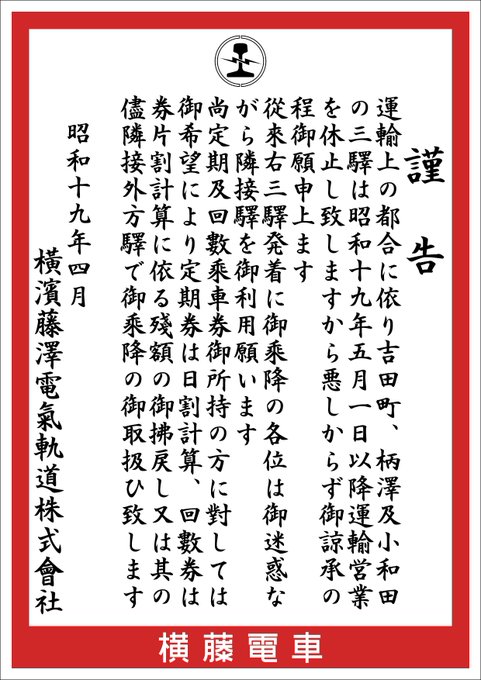 謹告
運輸上の都合に依り吉田町、柄澤及小和田
の三驛は昭和十九年五月一日以降運輸営業
を休止し致しますから悪しからず御諒承の
程御願申上ます
從來右三驛発着に御乘降の各位は御迷惑な
がら隣接驛を御利用願います
尚定期及回數乘車券御所持の方に對しては
御希望により定期券は日割計算、回數券は
券片割計算に依る殘額の御拂戻し又は其の
儘隣接外方驛で御乘降の御取扱ひ致します
昭和十九年四月
橫濱藤澤電氣軌道株式會社
橫藤電車